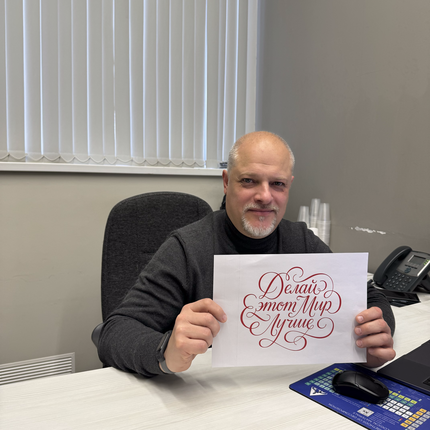 Делай
этот Мир
Лучше